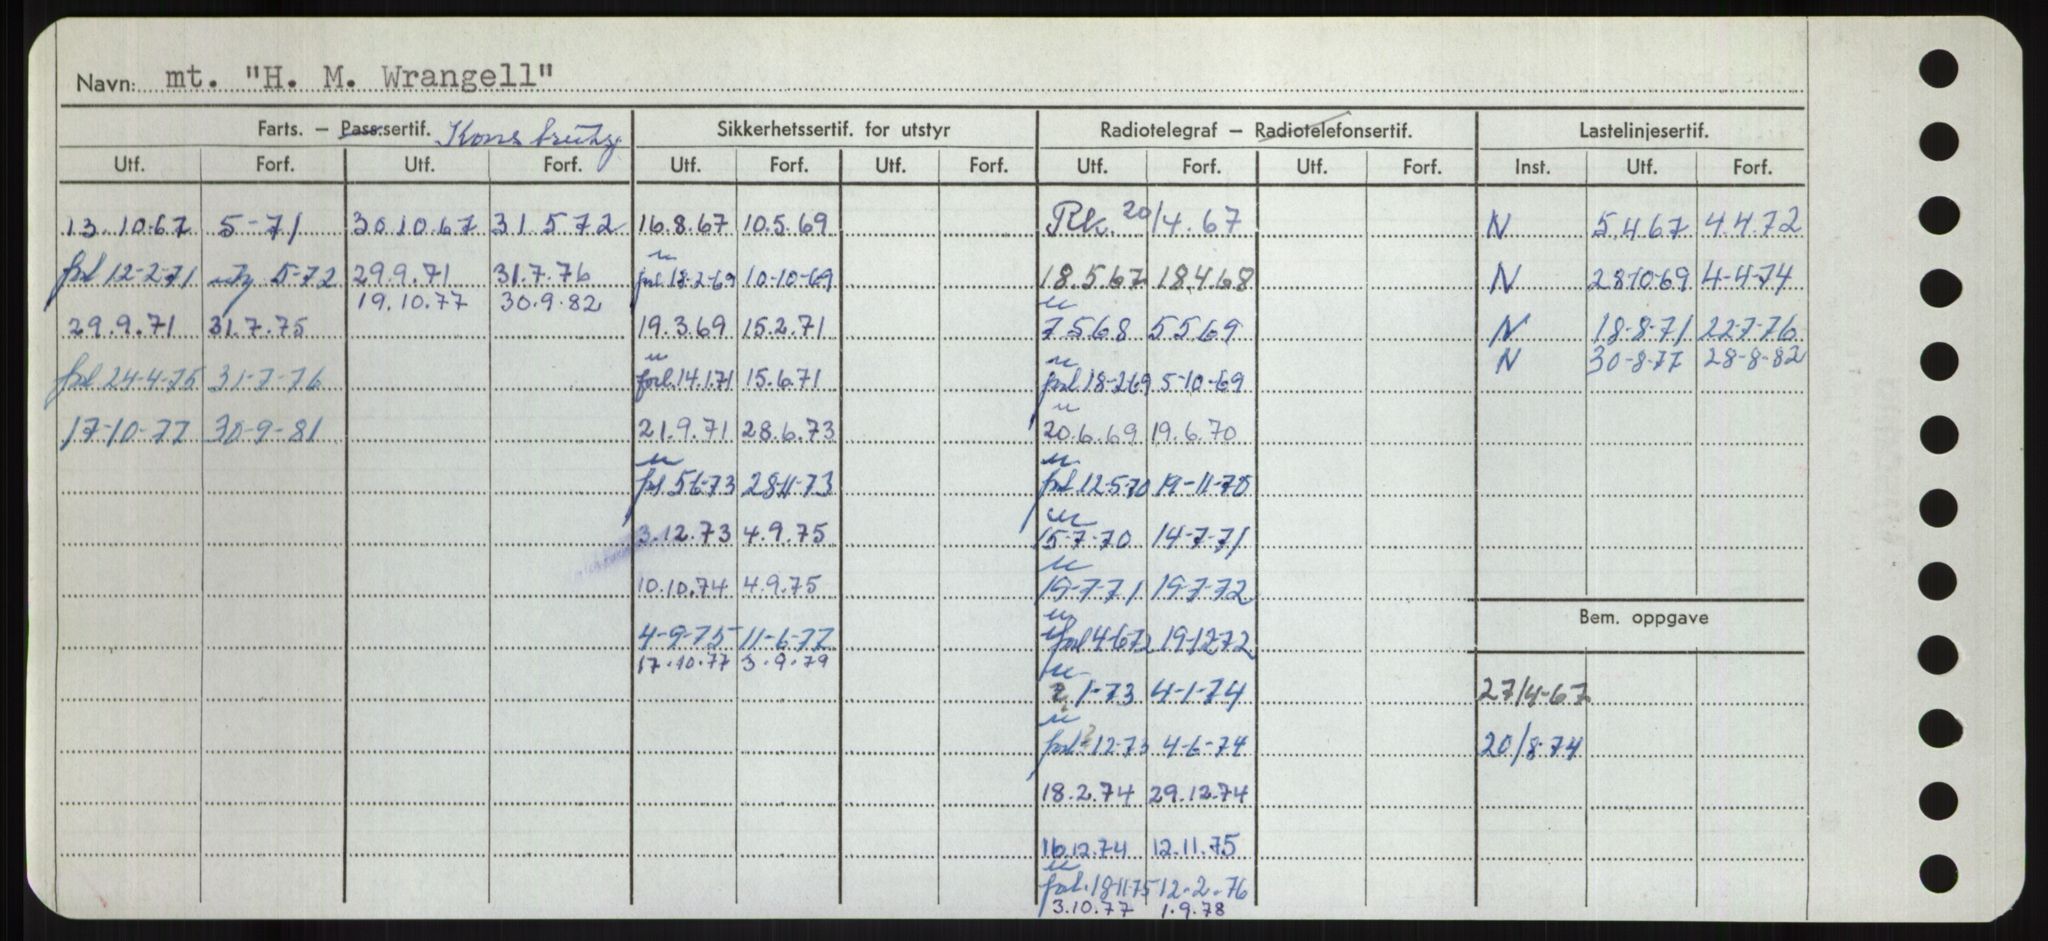 Navn: mt. "H. M. Wrangell"
Farts. – Pass.sertif. Sikkerhetssertif. for utstyr Radiotelegraf – Radiotelefonsertif. Lastelinjesertif.
Utf. Forf. Utf. Forf. Utf. Forf. Utf. Forf. Utf. Forf. Utf. Forf. Inst. Utf. Forf.
13.10.67 5-71 30.10.67 31.5.72 16.8.67 10.5.69 Rk. 20/4.67 N 5.4.67 4.4.72
forl 12-2-71 5-72 29.9.71 31.7.76 forl. 18-2-69 10-10-69 18.5.67 18.4.68 N 28-10-69 4-4-74
19.10.77 30.9.82
29.9.71 31.7.75 19.3.69 15.2.71 7.5.68 5.5.69 N 18-8-71 22-7-76
N 30-8-77 28-8-82
forl 24-4-75 31-7-76 forl. 14.1.71 15.6.71 forl. 18-2-69 5-10-69
17-10-77 30-9-81 21.9.71 28.6.73 20.6.69 19.6.70
forl 5-6-73 28-11-73 forl 12-5-70 19-11-70
3.12.73 4.9.75 15-7-70 14-7-71
10.10.74 4.9.75 19-7-71 19-7-72
Bem. oppgave
4-9-75 11-6-77 forl 4-6-72 19-12-72
17.10.77 3.9.79
1-73 4-1-74 27/4-67
forl 12-73 4-6-74 20/8-74
18.2.74 29.12.74
16.12.74 12.11.75
forl. 18-11-75 12-2-76
3.10.77 1.9.78